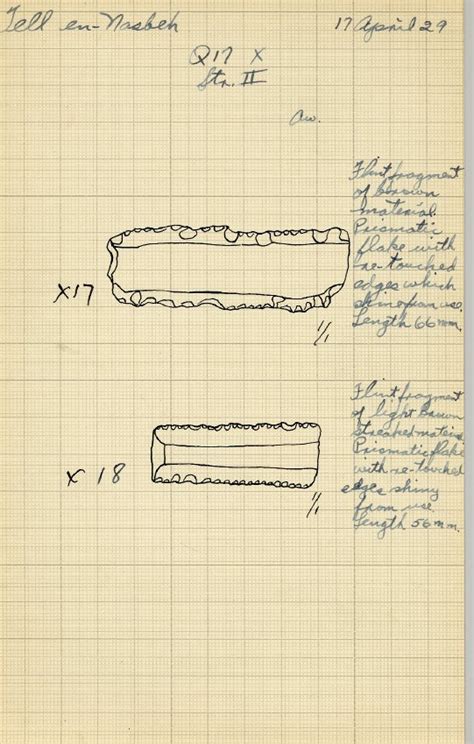 Tell en-Nasbeh 17 April 29
Q17 X
Str. II
Aw.
Flint fragment
of brown
material.
Prismatic
flake with
re-touched
edges which
shine from use.
Length 66 mm.
X17
1/1
Flint fragment
of light brown
streaked material
Prismatic flake
with re-touched
edges shiny
from use.
Length 56 mm.
X 18
1/1